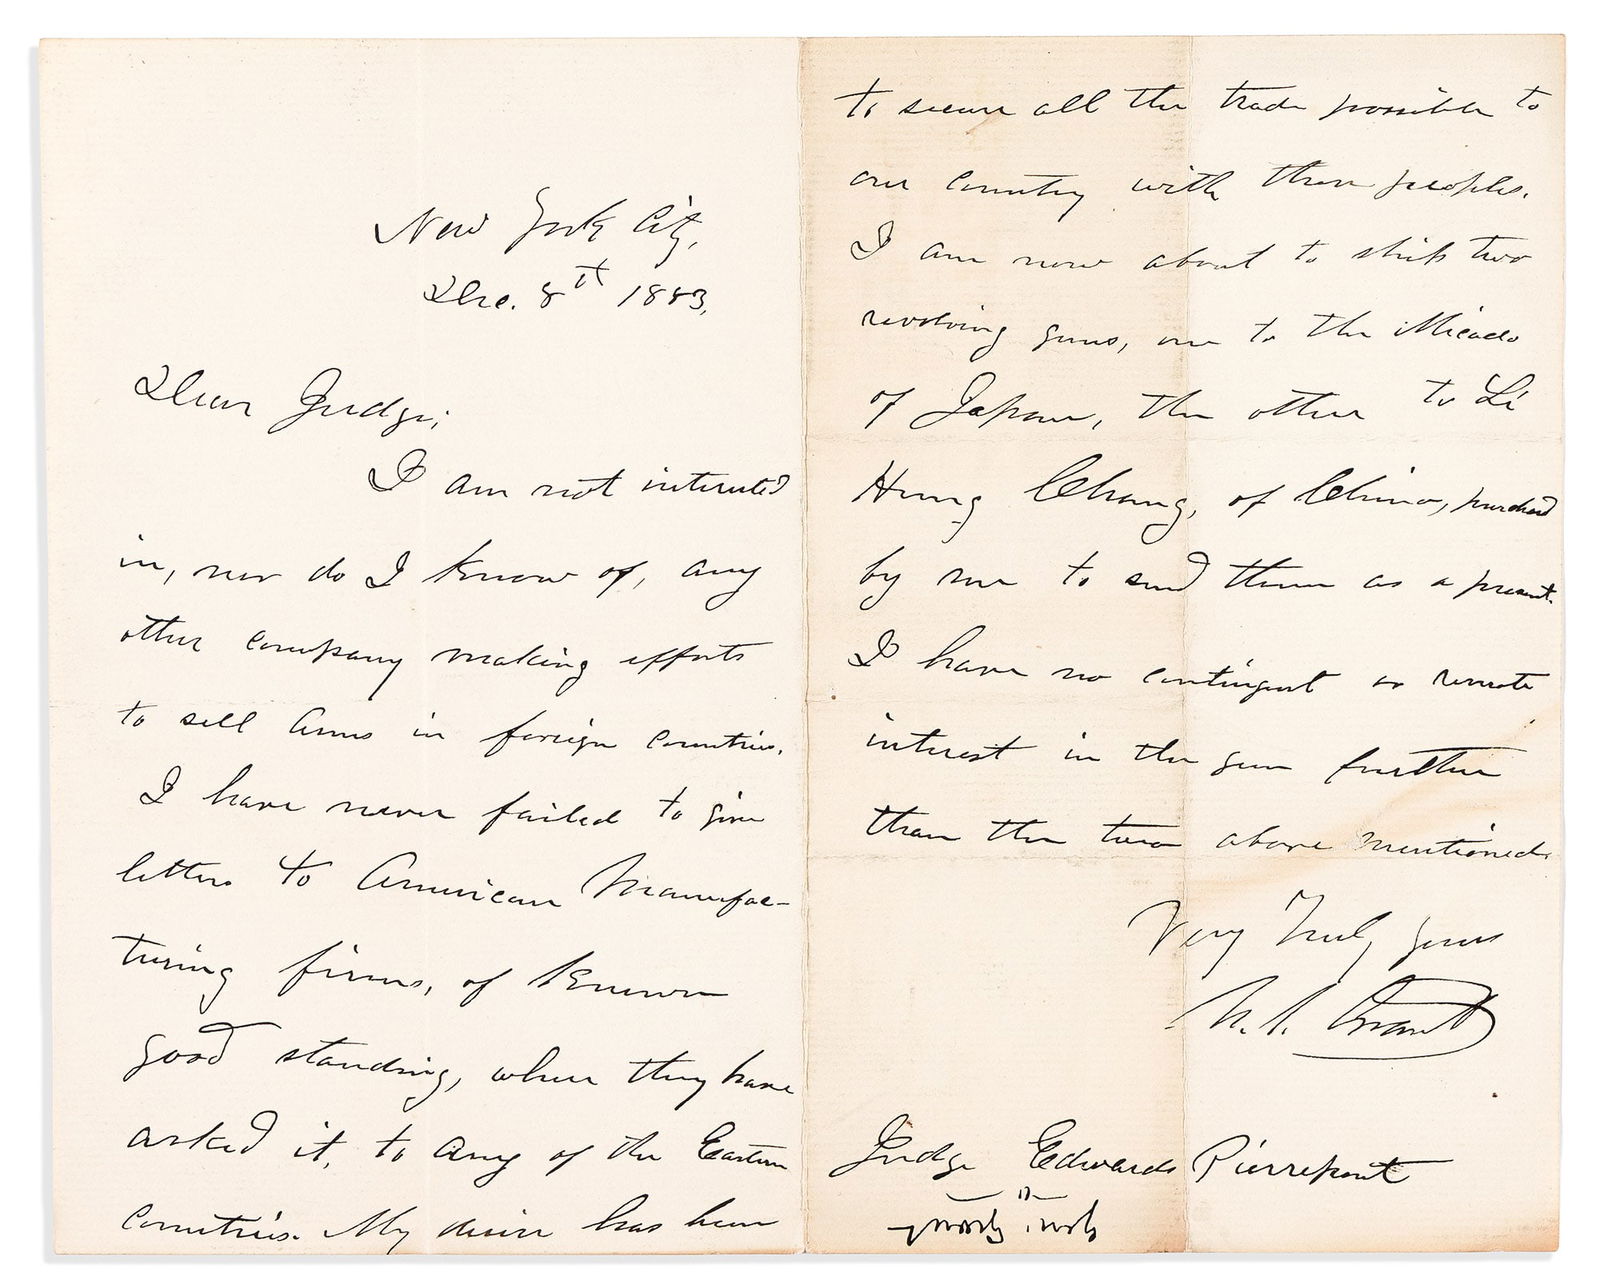 New York City,
Dec. 8th 1883,
Dear Judge;
I am not interested
in, nor do I know of, any
other company making efforts
to sell Arms in foreign countries.
I have never failed to give
letters to American Manufac-
turing firms, of known
good standing, when they have
asked it, to any of the Eastern
countries. My desire has been
to secure all the trade possible to
our country with those peoples.
I am now about to ship two
revolving guns, one to the Micado
of Japan, the other to Li
Hung Chang, of China, purchased
by me to send them as a present.
I have no contingent or remote
interest in the gun further
than the two above mentioned.
Very Truly yours
U. S. Grant
Judge Edwards Pierrepont